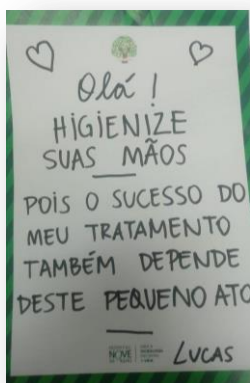 Olá!
HIGIENIZE
SUAS MÃOS
POIS O SUCESSO DO
MEU TRATAMENTO
TAMBÉM DEPENDE
DESTE PEQUENO ATO
NOVE
LUCAS